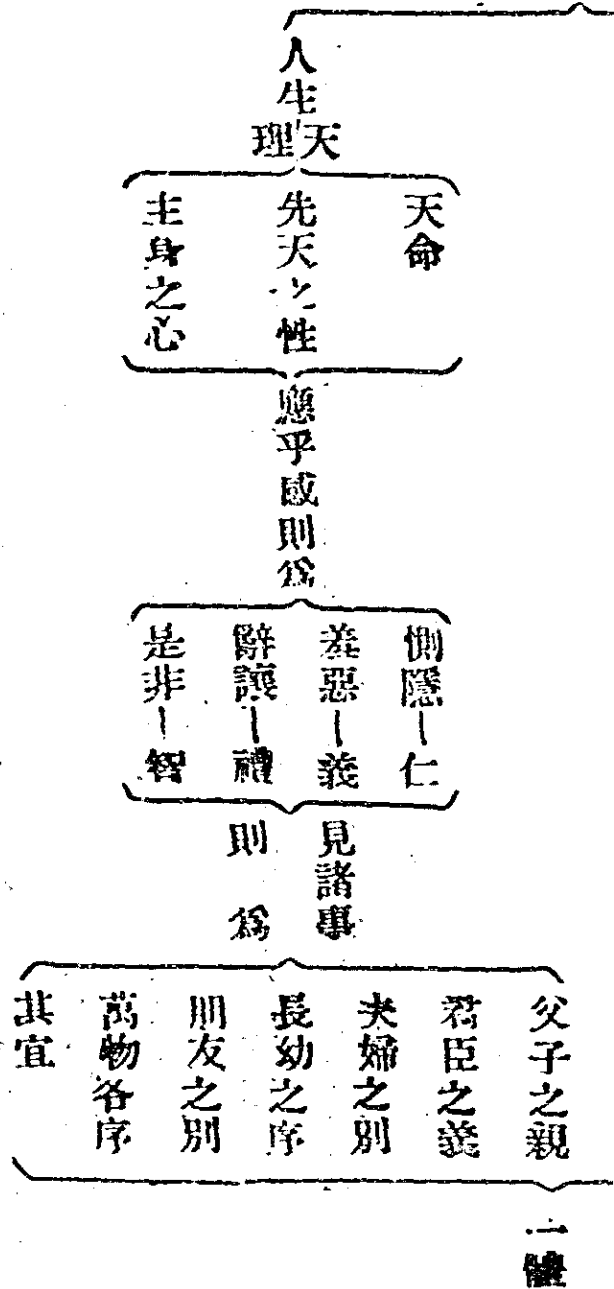 人生
天
理
天命
先天之性
主身之心
應乎感則爲
惻隱—仁
羞惡—義
辭讓—禮
是非—智
見諸事
則爲
父子之親
君臣之義
夫婦之別
長幼之序
朋友之別
萬物各序
其宜
一體